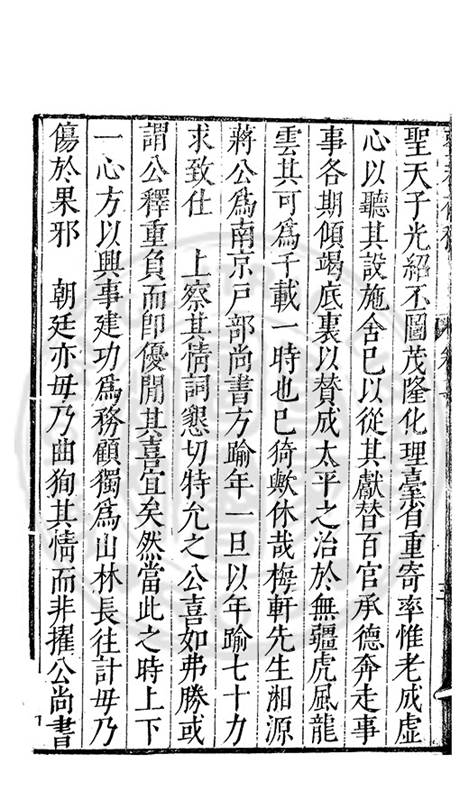 聖天子光紹丕圖茂隆化理臺省重寄率惟老成虛
心以聽其設施舍已以從其獻替百官承德奔走事
事各期傾竭底裏以贊成太平之治於無疆虎風龍
雲其可爲千載一時也已猗歟休哉梅軒先生湘源
蔣公爲南京戸部尚書方踰年一旦以年踰七十力
求致仕　上察其情詞懇切特允之公喜如弗勝或
謂公釋重負而卽優閒其喜宜矣然當此之時上下
一心方以興事建功爲務顧獨爲山林長往計毋乃
傷於果邪　朝廷亦毋乃曲狥其情而非擢公尚書